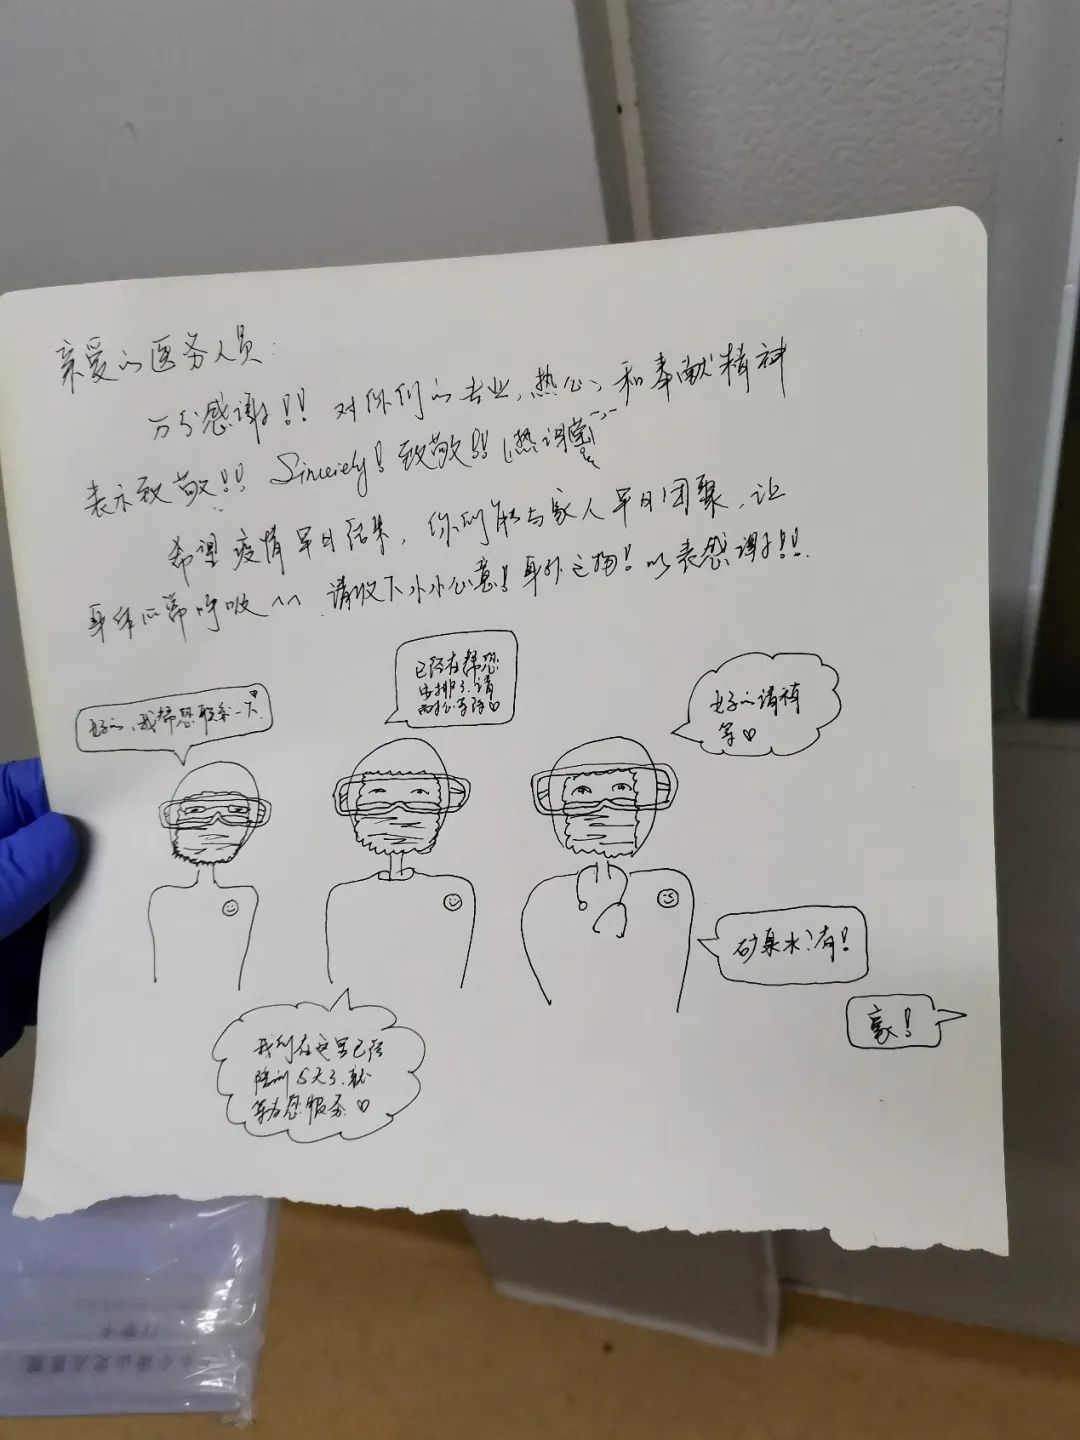 亲爱的医务人员：
万分感谢!!! 对你们的专业、热心、和奉献精神
表示致敬!!! Sincerely! 致敬!!!
希望疫情早日结束，你们能与家人早日团聚，让
身体正常呼吸^^ 请收下小小心意! 身外之物! 以表感谢!!!
好的，我帮您联系一下
已经在帮您
安排了，请
耐心等待
好的请稍
等
矿泉水？有!
豪!
我们在这里已经
培训5天了，就
等为您服务